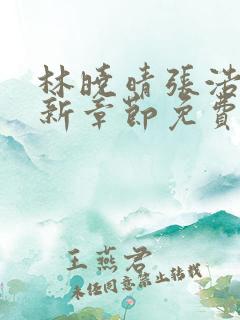 林曉晴張浩
新章節免費
王燕君
未經同意禁止轉載